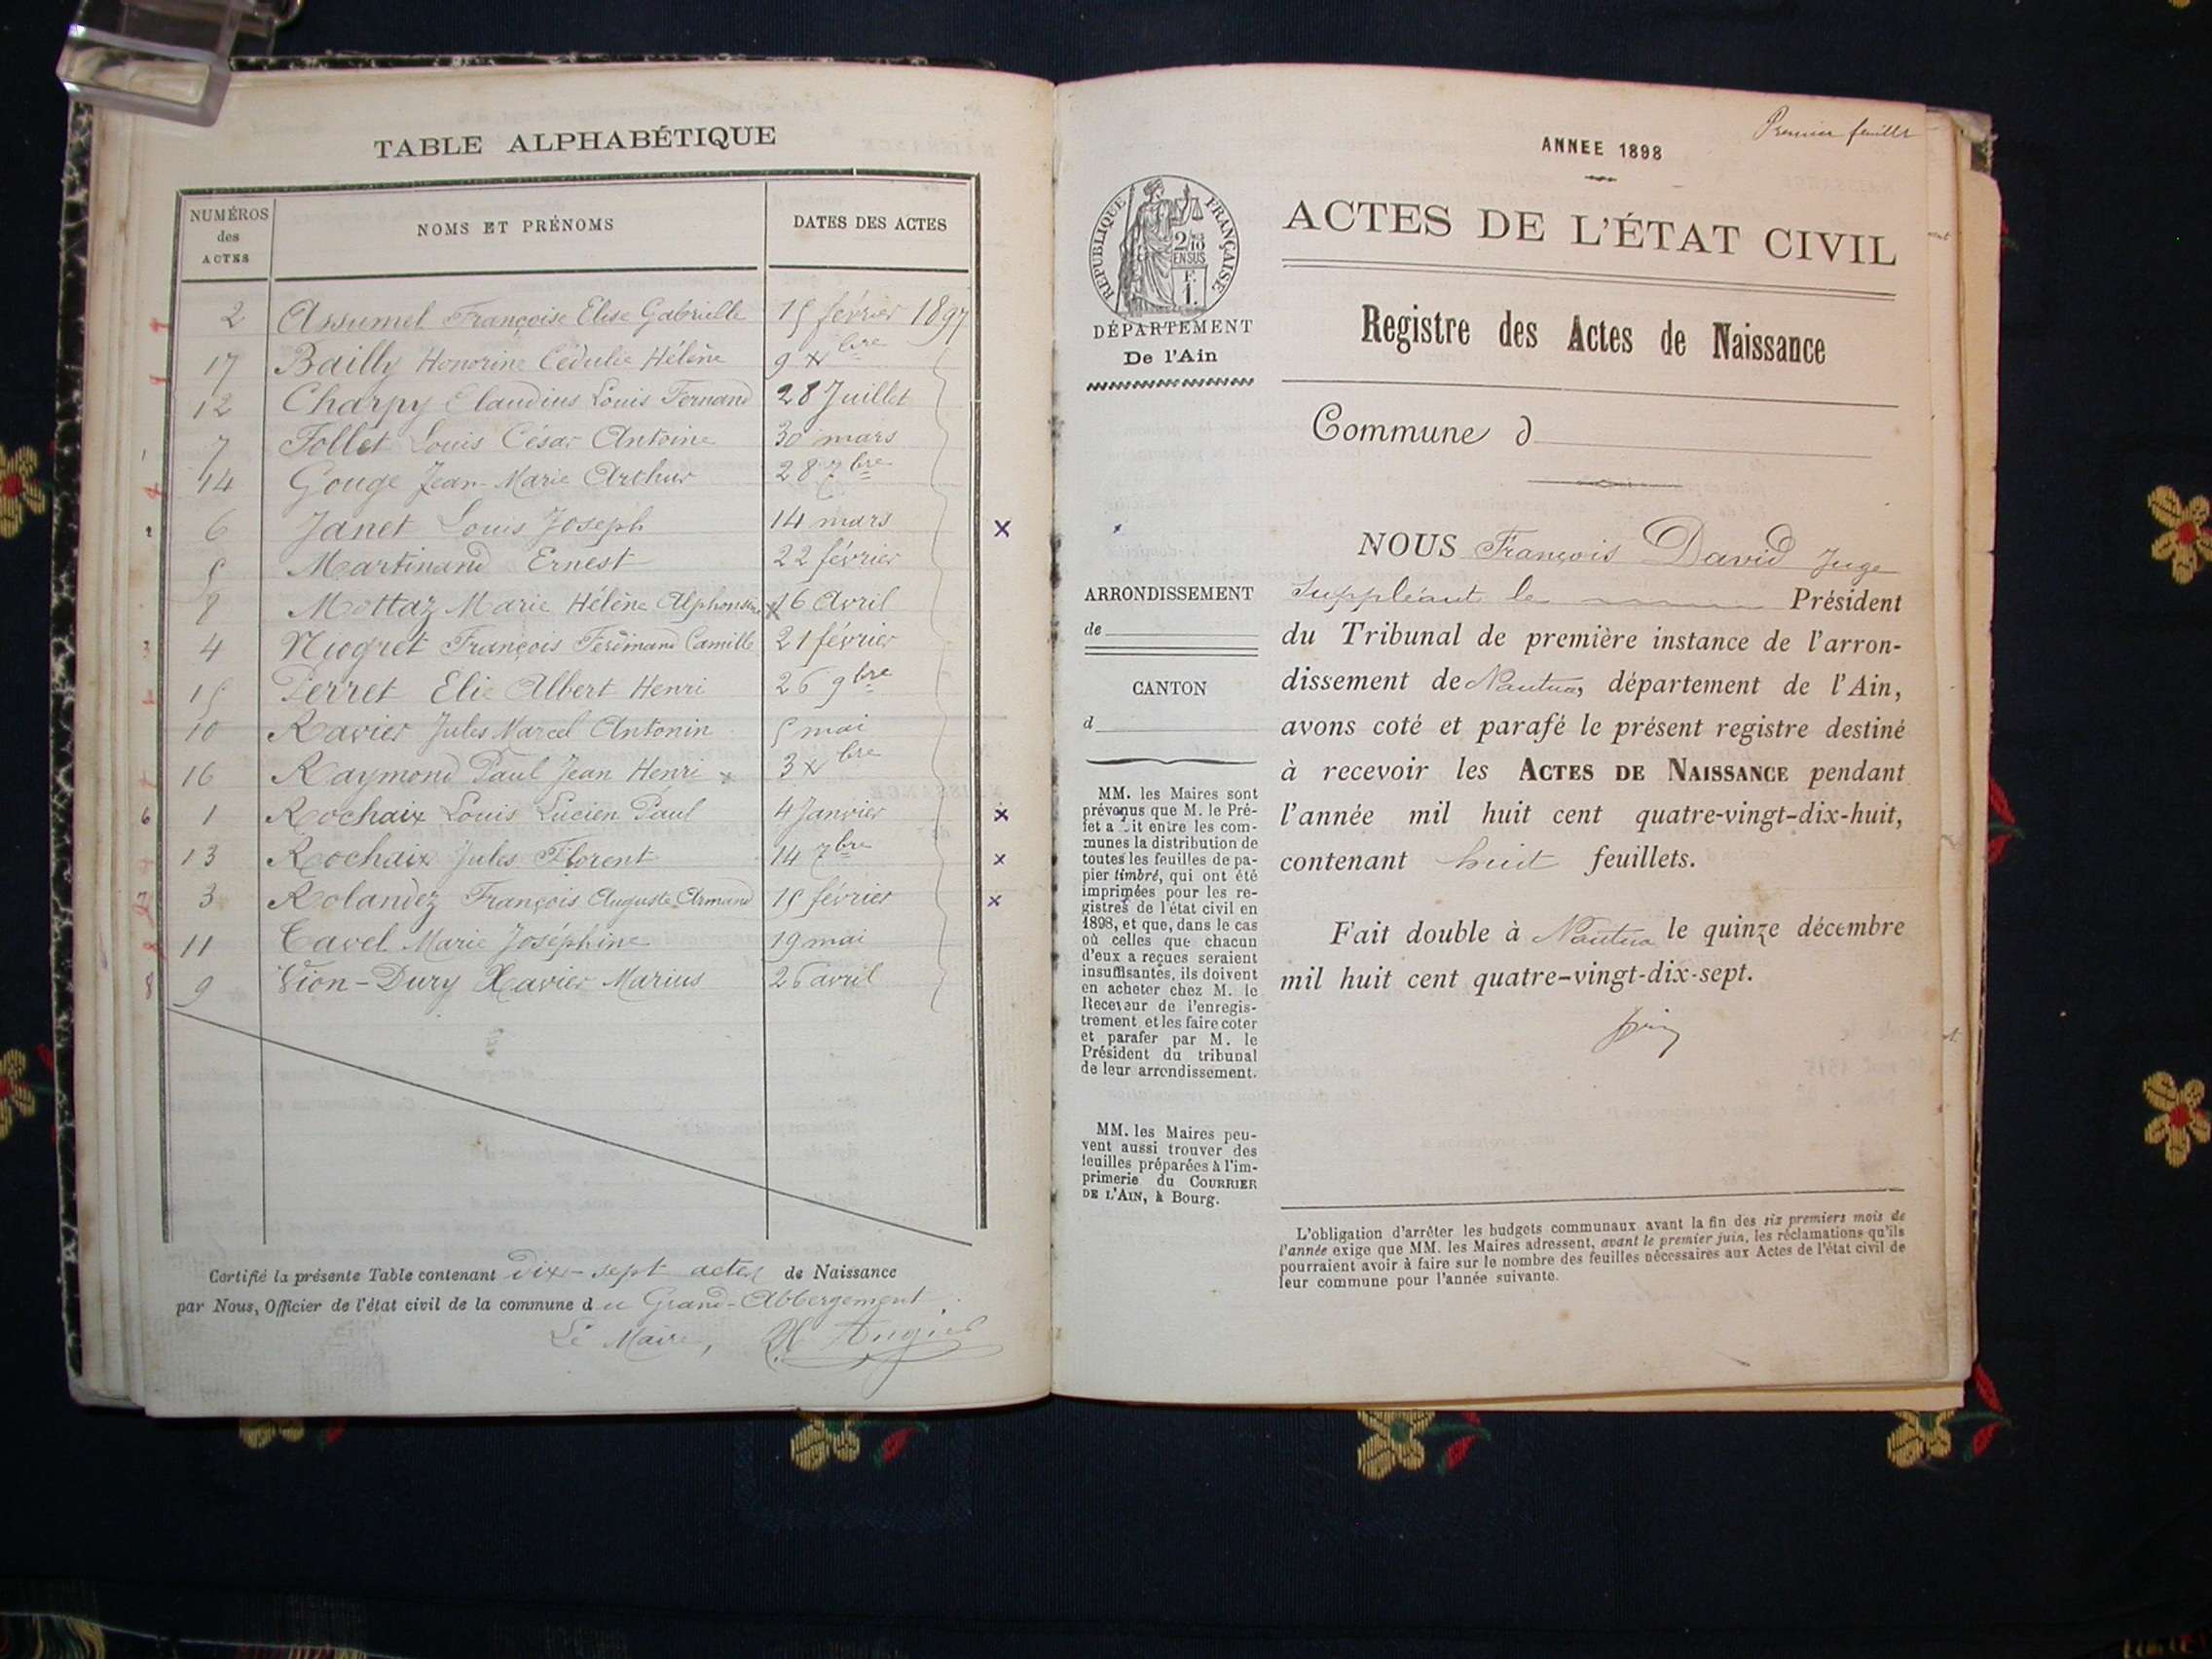 TABLE ALPHABÉTIQUE
NUMÉROS des ACTES NOMS ET PRÉNOMS DATES DES ACTES
2 Assumel Françoise Elise Gabrielle 15 février 1897
17 Bailly Honorine Cédulie Hélène 9 Xbre
12 Charpy Claudius Louis Fernand 28 Juillet
7 Follet Louis César Antoine 30 mars
14 Gouge Jean-Marie Arthur 28 7bre
6 Janet Louis Joseph 14 mars
5 Martinand Ernest 22 février
8 Mottaz Marie Hélène Alphonsine 16 Avril
4 Niogret François Camille 21 février
15 Perret Elie Albert Henri 26 9bre
10 Ravier Jules Marcel Antonin 5 mai
16 Raymond Paul Jean Henri 3 Xbre
1 Rochaix Louis Lucien Paul 4 Janvier
13 Rochaix Jules Florent 14 7bre
3 Rolandez François Auguste Armand 15 février
11 Tavel Marie Joséphine 19 mai
9 Vion-Dury Xavier Marius 26 avril
Certifié la présente Table contenant Dix-sept actes de Naissance
par Nous, Officier de l'état civil de la commune du Grand-Abbergement
Le Maire,
Premier feuillet
ANNEE 1898
RÉPUBLIQUE FRANÇAISE
2/10
EN SUS
F.
1.
DÉPARTEMENT
De l'Ain
ACTES DE L'ÉTAT CIVIL
Registre des Actes de Naissance
Commune d
ARRONDISSEMENT
de
CANTON
d
MM. les Maires sont
prévenus que M. le Pré-
fet a fait entre les com-
munes la distribution de
toutes les feuilles de pa-
pier timbré, qui ont été
imprimées pour les re-
gistres de l'état civil en
1898, et que, dans le cas
où celles que chacun
d'eux a reçues seraient
insuffisantes, ils doivent
en acheter chez M. le
Receveur de l'enregis-
trement et les faire coter
et parafer par M. le
Président du tribunal
de leur arrondissement.
MM. les Maires peu-
vent aussi trouver des
feuilles préparées à l'im-
primerie du COURRIER
DE L'AIN, à Bourg.
NOUS François David Juge
Suppléant le Président
du Tribunal de première instance de l'arron-
dissement de Nantua, département de l'Ain,
avons coté et parafé le présent registre destiné
à recevoir les ACTES DE NAISSANCE pendant
l'année mil huit cent quatre-vingt-dix-huit,
contenant huit feuillets.
Fait double à Nantua le quinze décembre
mil huit cent quatre-vingt-dix-sept.
L'obligation d'arrêter les budgets communaux avant la fin des six premiers mois de
l'année exige que MM. les Maires adressent, avant le premier juin, les réclamations qu'ils
pourraient avoir à faire sur le nombre des feuilles nécessaires aux Actes de l'état civil de
leur commune pour l'année suivante.